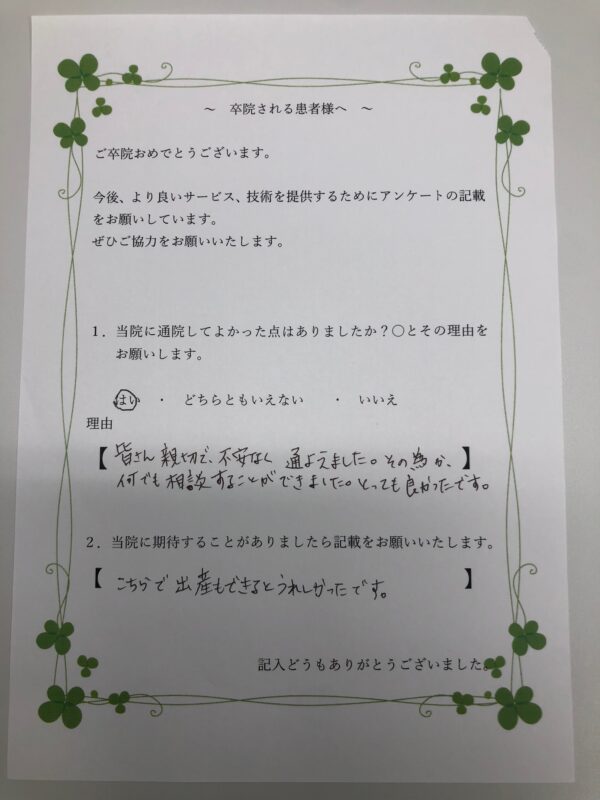 ～ 卒院される患者様へ ～
ご卒院おめでとうございます。
今後、より良いサービス、技術を提供するためにアンケートの記載
をお願いしています。
ぜひご協力をお願いいたします。
1．当院に通院してよかった点はありましたか？〇とその理由を
お願いします。
はい ・ どちらともいえない ・ いいえ
理由
【 皆さん親切で、不安なく 通よえました。その為か、 】
何でも相談することができました。とっても良かったです。
2．当院に期待することがありましたら記載をお願いいたします。
【 こちらで出産もできるとうれしかったです。 】
記入どうもありがとうございました。